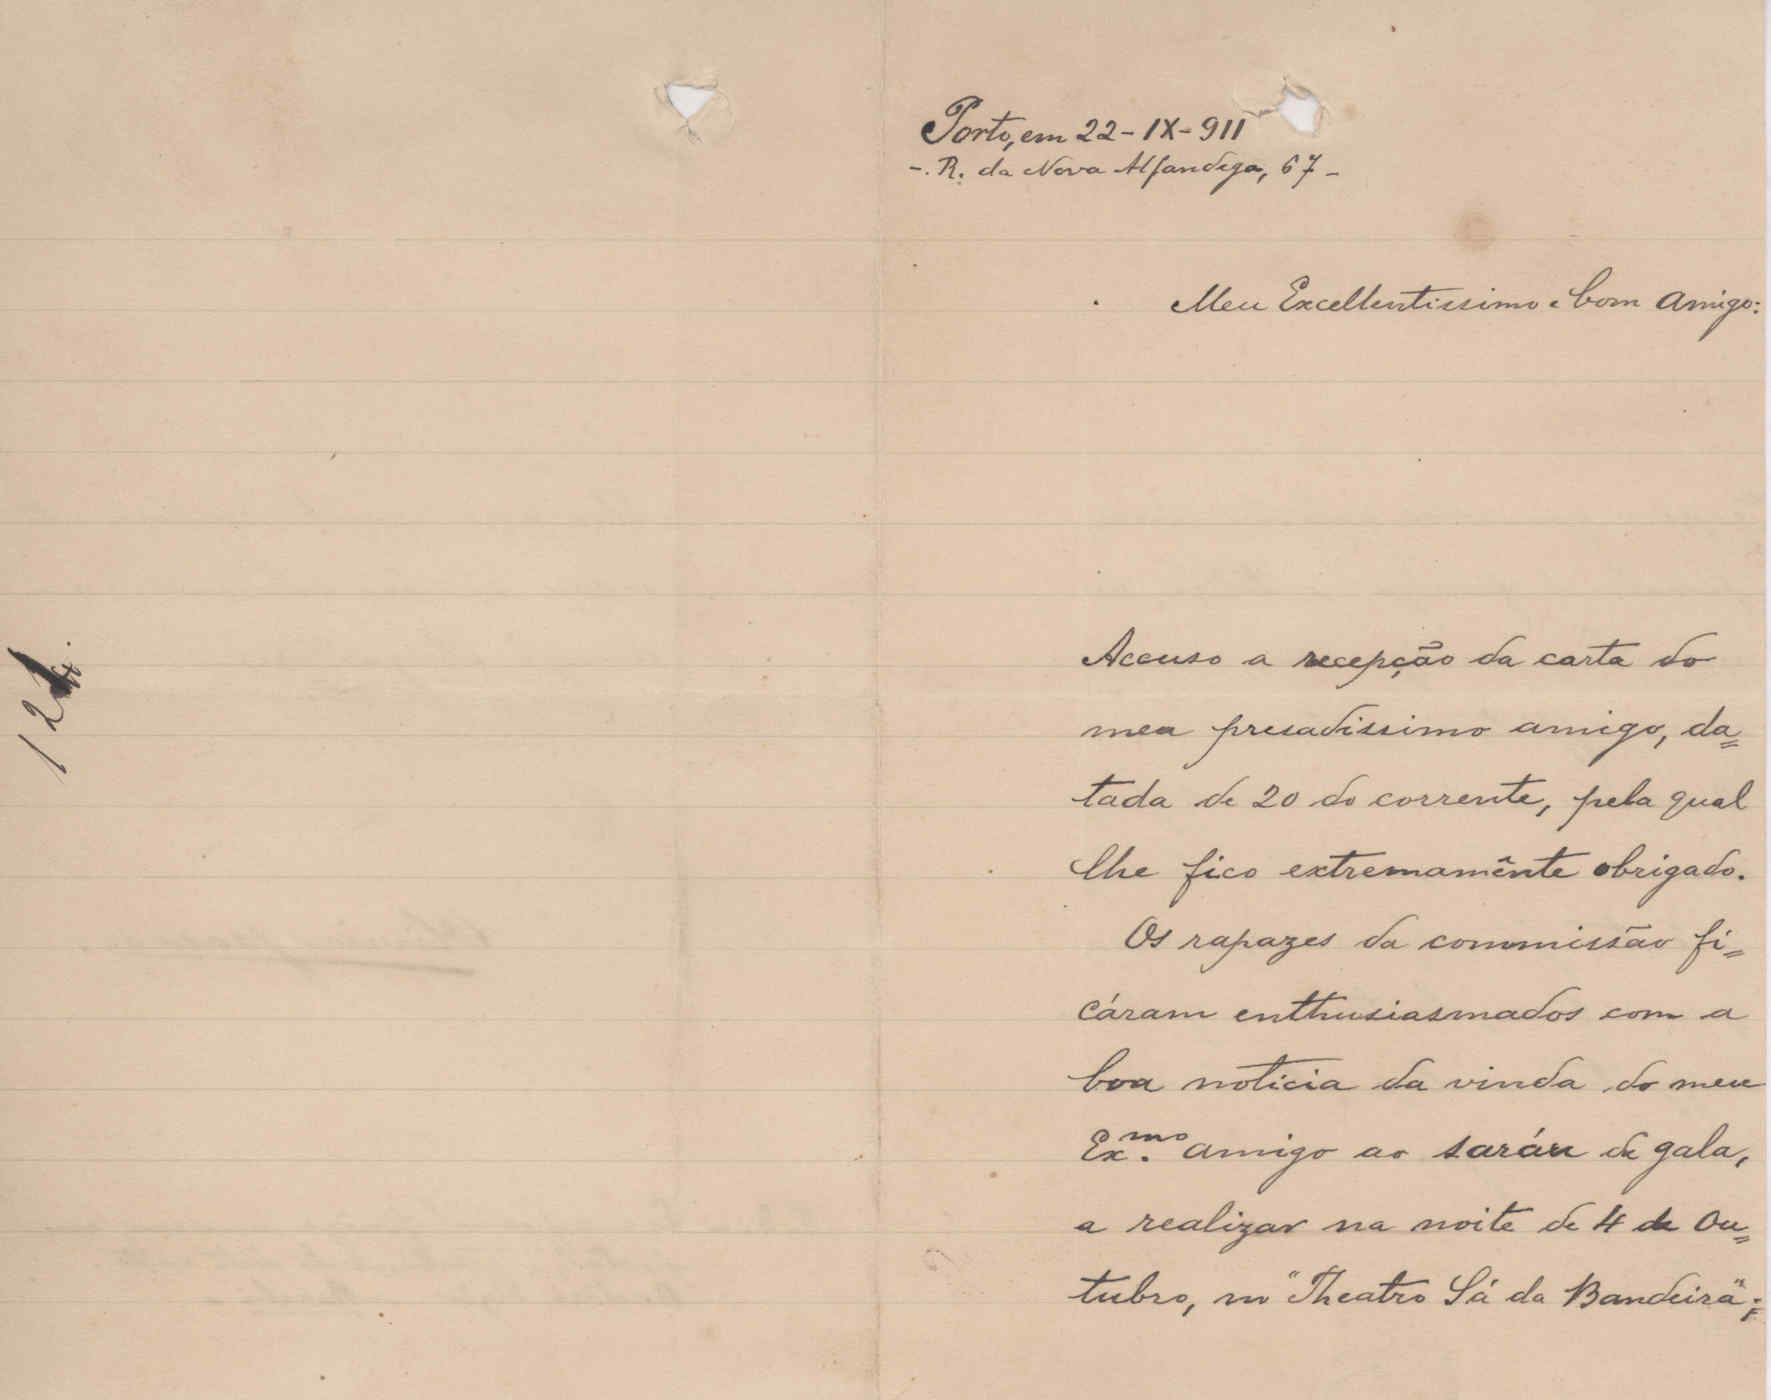 Porto, em 22-IX-911
-. R. da Nova Alfandega, 67-
Meu Excellentissimo e bom amigo:
Accuso a recepção da carta do
meu presadissimo amigo, da=
tada de 20 do corrente, pela qual
lhe fico extremamênte obrigado.
Os rapazes da commissão fi=
cáram enthusiasmados com a
boa noticia da vinda do meu
Ex.mo amigo ao saráu de gala,
a realizar na noite de 4 de Ou=
tubro, no "Theatro Sá da Bandeira";
12